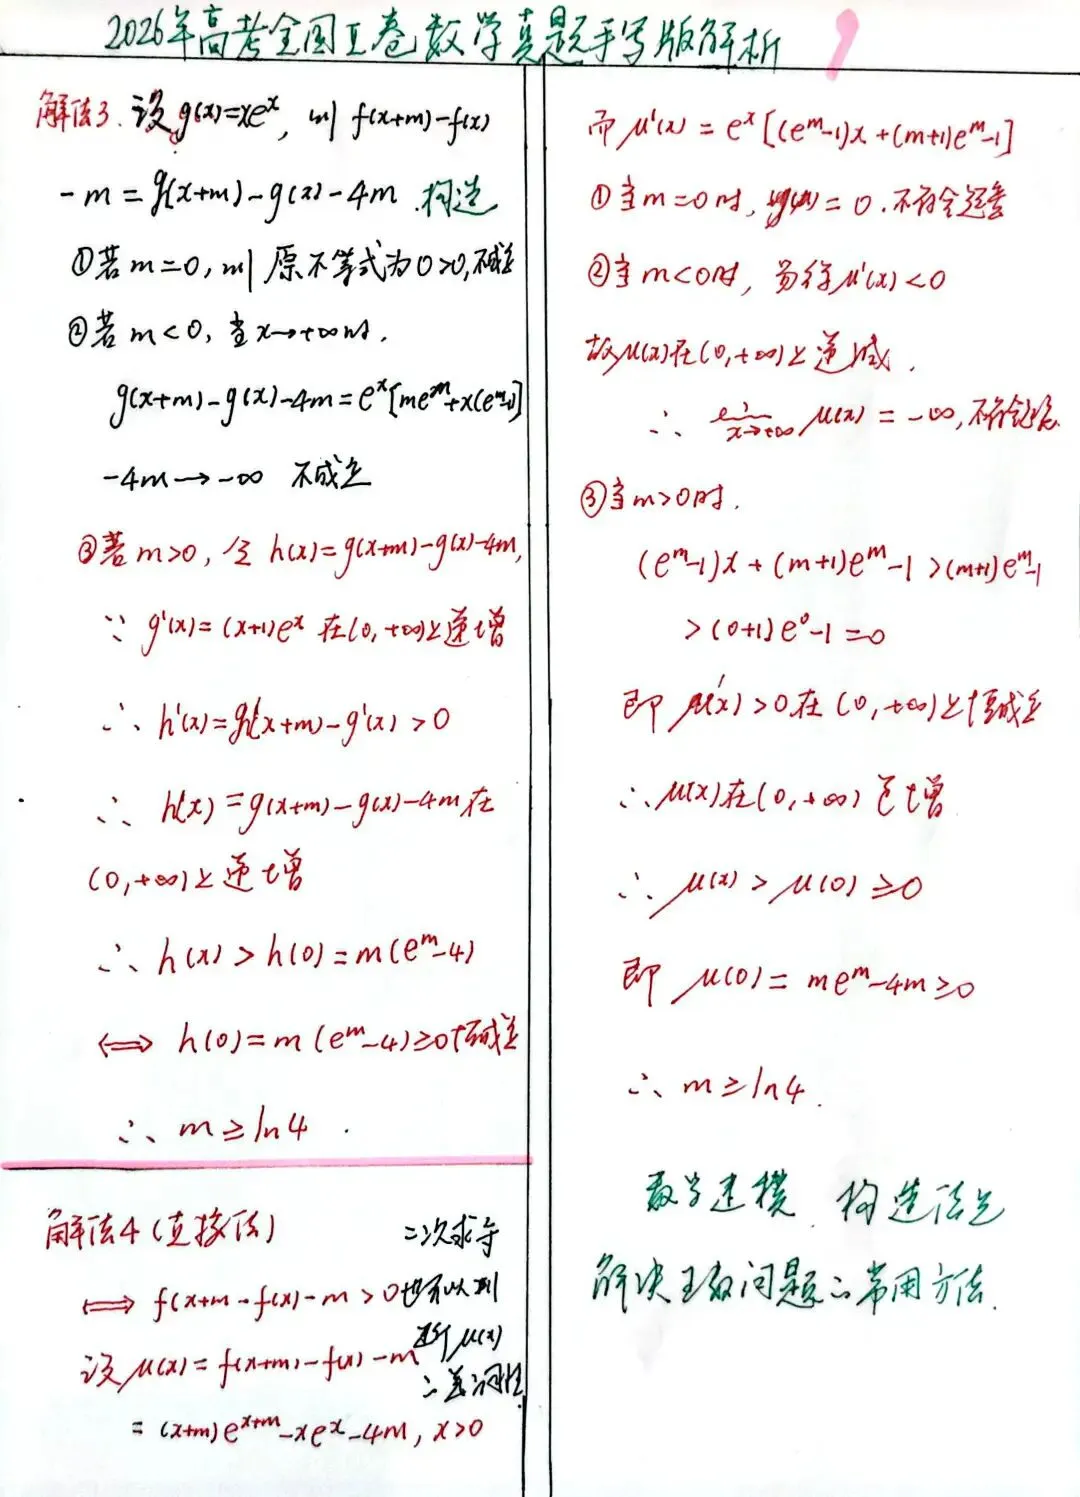 2026年高考全国I卷数学真题手写版解析
解法3. 设g(x)=xe^x, 则 f(x+m)-f(x)
-m=g(x+m)-g(x)-4m.构造
①若m=0, 则原不等式为0>0,不成立
②若m<0, 当x→+∞时,
g(x+m)-g(x)-4m=e^x[me^m+x(e^m-1)]
-4m→-∞ 不成立
③若m>0, 令 h(x)=g(x+m)-g(x)-4m,
∵ g'(x)=(x+1)e^x 在(0,+∞)上递增
∴ h'(x)=g'(x+m)-g'(x)>0
∴ h(x)=g(x+m)-g(x)-4m在
(0,+∞)上递增
∴ h(x)>h(0)=m(e^m-4)
⟺ h(0)=m(e^m-4)≥0恒成立
∴ m≥ln4.
解法4(直接法) 二次求导
⟺ f(x+m-f(x)-m>0 也可以判
断μ(x)
设μ(x)=f(x+m)-f(x)-m
之单调性
=(x+m)e^{x+m}-xe^x-4m, x>0
而μ'(x)=e^x[(e^m-1)x+(m+1)e^m-1]
①当m=0时, μ(x)=0.不符合题意
②当m<0时, 易得μ'(x)<0
故μ(x)在(0,+∞)上递减.
∴ x→+∞ μ(x)=-∞,不符合题意.
③当m>0时.
(e^m-1)x+(m+1)e^m-1>(m+1)e^m-1
>(0+1)e^0-1=0
即 μ'(x)>0在(0,+∞)上恒成立
∴μ(x)在(0,+∞)递增
∴μ(x)>μ(0)≥0
即 μ(0)=me^m-4m≥0
∴ m≥ln4.
数学建模、构造法是
解决函数问题之常用方法.